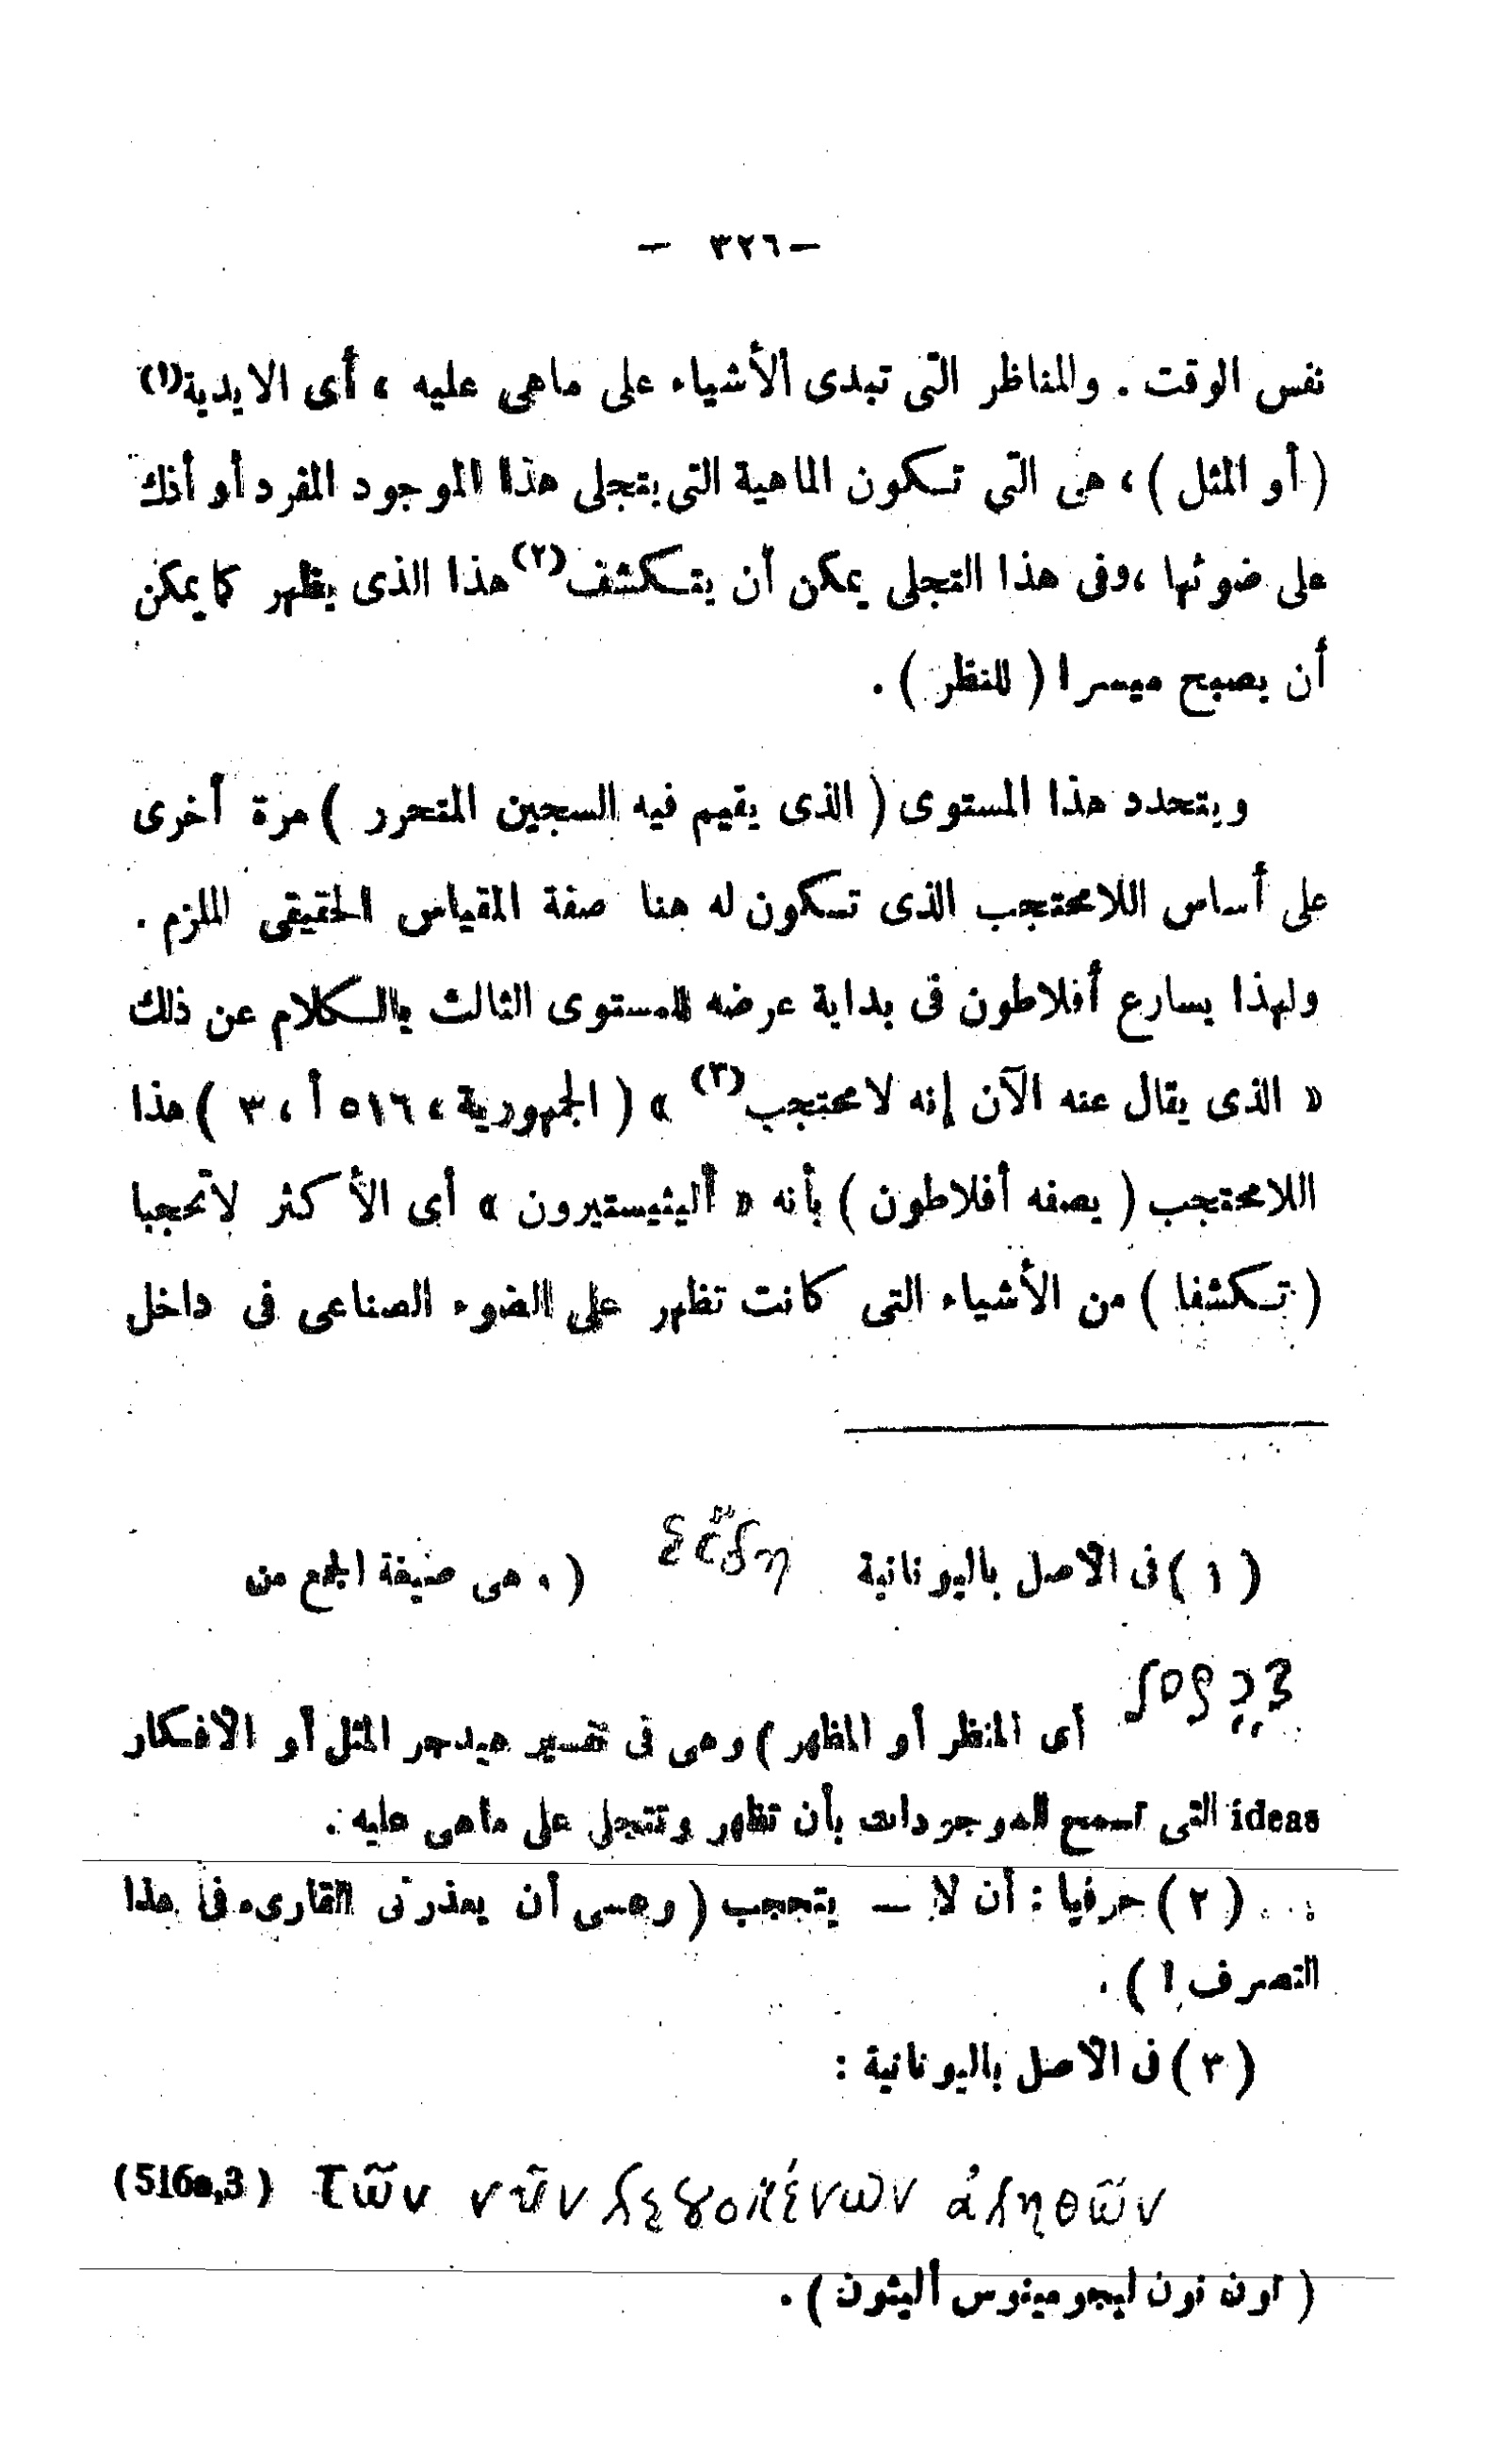 — ٣٢٦ —
نفس الوقت . والمناظر التى تبدى الأشياء على ماهى عليه ، أى الايدية(١)
( أو المثل ) ، هى التى تكون الماهية التى يتجلى هذا الموجود المفرد أو أذلك
على ضوئها ، وفى هذا التجلى يمكن أن يتكشف(٢) هذا الذى يظهر كما يمكن
أن يصبح ميسرا ( للنظر ) .
ويتحدد هذا المستوى ( الذى يقيم فيه السجين المتحرر ) مرة أخرى
على أساس اللامحتجب الذى تكون له هنا صفة المقياس الحقيقى الملزم .
ولهذا يسارع أفلاطون فى بداية عرضه للمستوى الثالث بالكلام عن ذلك
« الذى يقال عنه الآن إنه لا محتجب(٣) » ( الجمهورية ، ٥١٦ أ ، ٣ ) هذا
اللامحتجب ( يصفه أفلاطون ) بأنه « أليثيستيرون » أى الأكثر لاتحجبا
( تكشفا ) من الأشياء التى كانت تظهر على الضوء الصناعى فى داخل
( ١ ) فى الاصل باليونانية εἴδη ( و هى صيغة الجمع من
εἶδος أى المنظر أو المظهر ) وهى فى تفسير هيدجر المثل أو الافكار
ideas التى تسمح للموجودات بأن تظهر وتتجلى على ماهى عليه .
( ٢ ) حرفيا : أن لا — يتحجب ( وعسى أن يعذرنى القارىء فى هذا
التصرف ! ) .
( ٣ ) فى الاصل باليونانية :
τῶν νῦν λεγομένων ἀληθῶν (516a,3)
( تون نون ليجومينوس أليثون ) .